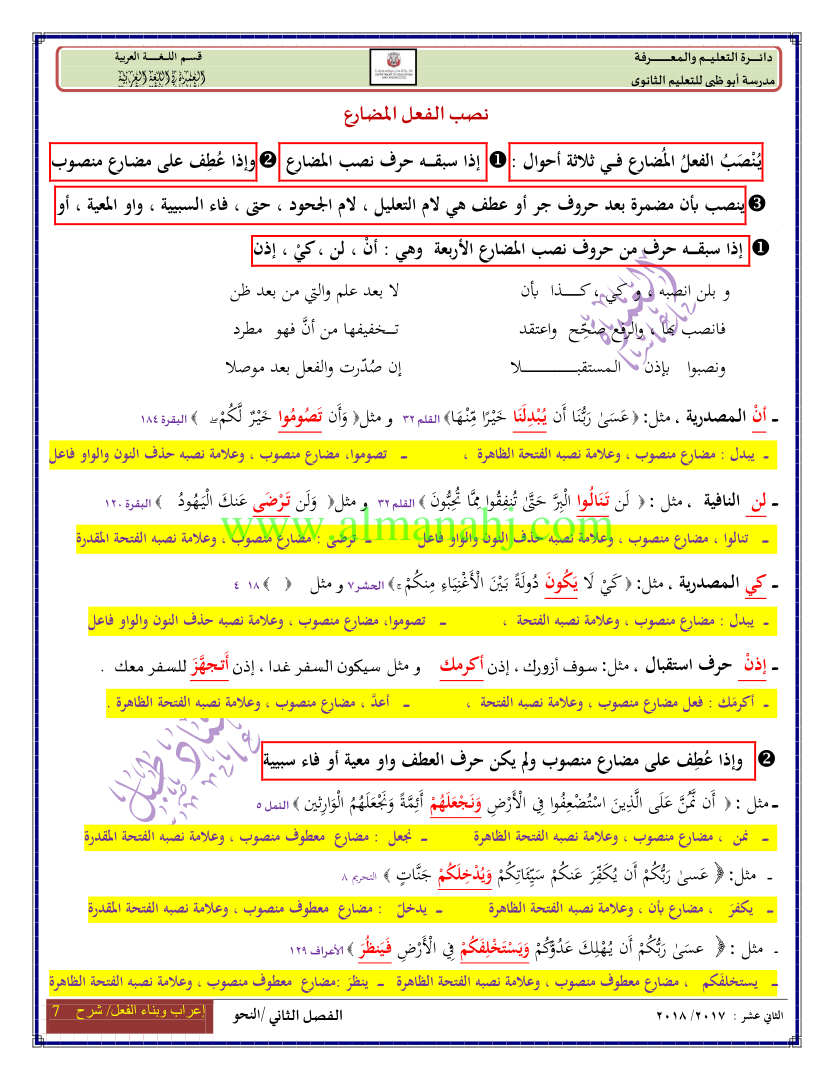 دائـــرة التعليـم والمعـــــرفة
مدرسة أبو ظبي للتعليم الثانوي
قســم اللـغــــة العربية
نصب الفعل المضارع
يُنْصَبُ الفعلُ المُضارع فـي ثلاثة أحوال : ❶ إذا سبقــه حرف نصب المضارع ❷ وإذا عُطِف على مضارع منصوب
❸ ينصب بأن مضمرة بعد حروف جر أو عطف هي لام التعليل ، لام الجحود ، حتى ، فاء السببية ، واو المعية ، أو
❶ إذا سبقــه حرف من حروف نصب المضارع الأربعة وهي : أنْ ، لن ، كيْ ، إذن
و بلن انصبه ، و كي ، كـــذا بأن لا بعد علم والتي من بعد ظن
فانصب بها ، والرفع صحِّح واعتقد تــخفيفها من أنَّ فهو مطرد
ونصبوا بإذن المستقبـــــــــلا إن صُدّرت والفعل بعد موصلا
ـ أنْ المصدرية ، مثل: ﴿ عَسَىٰ رَبُّنَا أَن يُبْدِلَنَا خَيْرًا مِّنْهَا﴾ القلم ٣٢ و مثل﴿ وَأَن تَصُومُوا خَيْرٌ لَّكُمْ ۖ ﴾ البقرة ١٨٤
ـ يبدل : مضارع منصوب ، وعلامة نصبه الفتحة الظاهرة ، ـ تصوموا، مضارع منصوب ، وعلامة نصبه حذف النون والواو فاعل
ـ لن النافية ، مثل :﴿ لَن تَنَالُوا الْبِرَّ حَتَّىٰ تُنفِقُوا مِمَّا تُحِبُّونَ ﴾ القلم ٣٢ و مثل﴿ وَلَن تَرْضَى عَنكَ الْيَهُودُ ﴾ البقرة ١٢٠
www.almanahj.com
ـ تنالوا ، مضارع منصوب ، وعلامة نصبه حذف النون والواو فاعل ـ ترضى : مضارع منصوب ، وعلامة نصبه الفتحة المقدرة
ـ كي المصدرية ، مثل: ﴿ كَيْ لَا يَكُونَ دُولَةً بَيْنَ الْأَغْنِيَاءِ مِنكُمْ ۚ﴾ الحشر ٧ و مثل ﴿ ﴾ ١٨ ٤
ـ يبدل : مضارع منصوب ، وعلامة نصبه الفتحة ، ـ تصوموا، مضارع منصوب ، وعلامة نصبه حذف النون والواو فاعل
ـ إذنْ حرف استقبال ، مثل: سـوف أزورك ، إذن أكرمك و مثل سـيكون السـفر غدا ، إذن أَتجهَّزَ للسـفر معك .
ـ أكرمَك : فعل مضارع منصوب ، وعلامة نصبه الفتحة ، ـ أعدَّ ، مضارع منصوب ، وعلامة نصبه الفتحة الظاهرة .
❷ وإذا عُطِف على مضارع منصوب ولم يكن حرف العطف واو معية أو فاء سببية
ـ مثل :﴿ أَن نَّمُنَّ عَلَى الَّذِينَ اسْتُضْعِفُوا فِي الْأَرْضِ وَنَجْعَلَهُمْ أَئِمَّةً وَنَجْعَلَهُمُ الْوَارِثِين ﴾ النمل ٥
ـ نمن ، مضارع منصوب ، وعلامة نصبه الفتحة الظاهرة ـ نجعل : مضارع معطوف منصوب ، وعلامة نصبه الفتحة المقدرة
ـ مثل: ﴿ عَسىٰ رَبُّكُمْ أَن يُكَفِّرَ عَنكُمْ سَيِّئَاتِكُمْ وَيُدْخِلَكُمْ جَنَّاتٍ ﴾ التحريم ٨
ـ يكفرَ ، مضارع بأن ، وعلامة نصبه الفتحة الظاهرة ـ يدخلَ : مضارع معطوف منصوب ، وعلامة نصبه الفتحة المقدرة
ـ مثل :﴿ عسىٰ رَبُّكُمْ أَن يُهْلِكَ عَدُوَّكُمْ وَيَسْتَخْلِفَكُمْ فِي الْأَرْضِ فَيَنظُرَ ﴾ الأعراف ١٢٩
ـ يستخلفَكم ، مضارع معطوف منصوب ، وعلامة نصبه الفتحة الظاهرة ـ ينظرَ :مضارع معطوف منصوب ، وعلامة نصبه الفتحة الظاهرة
الثاني عشر : ٢٠١٧/ ٢٠١٨ الفصل الثاني /النحو إعراب وبناء الفعل/ شرح 7